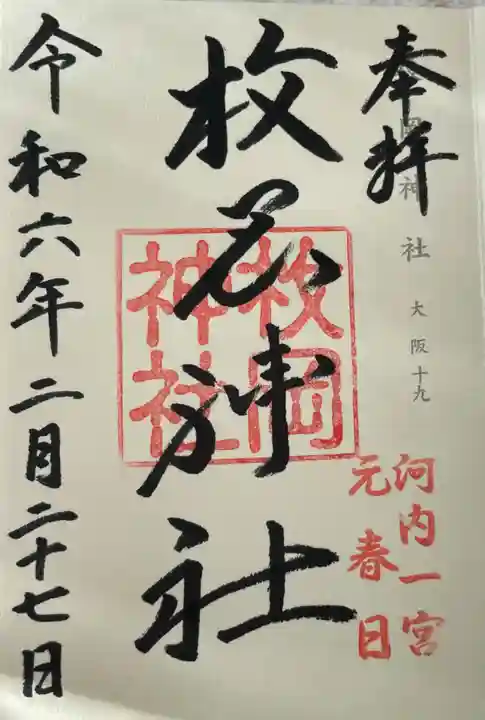 奉拝
岡神社 大阪十九
河内一宮
元春日
枚岡神社
枚岡神社
令和六年二月二十七日